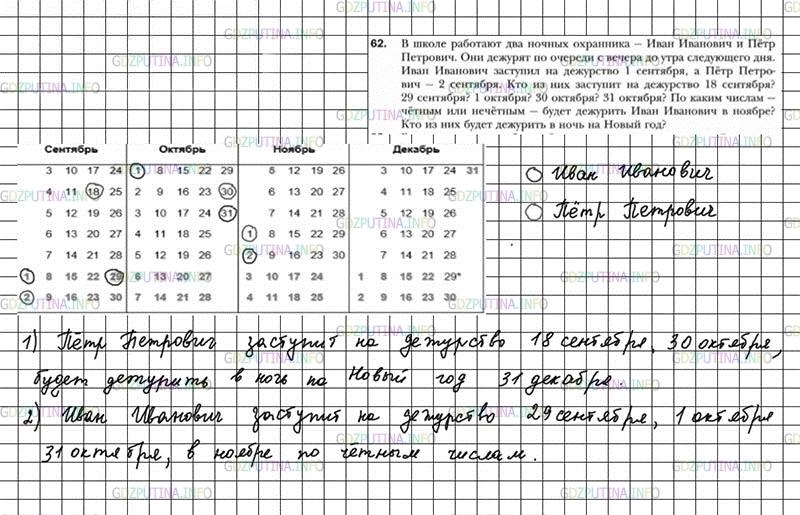 GDZPUTINA.INFO
62. В школе работают два ночных охранника – Иван Иванович и Пётр
Петрович. Они дежурят по очереди с вечера до утра следующего дня.
Иван Иванович заступил на дежурство 1 сентября, а Пётр Петро-
вич – 2 сентября. Кто из них заступит на дежурство 18 сентября?
29 сентября? 1 октября? 30 октября? 31 октября? По каким числам –
чётным или нечётным – будет дежурить Иван Иванович в ноябре?
Кто из них будет дежурить в ночь на Новый год?
Сентябрь Октябрь Ноябрь Декабрь
3 10 17 24 1 8 15 22 29 5 12 19 26 3 10 17 24 31
4 11 18 25 2 9 16 23 30 6 13 20 27 4 11 18 25
5 12 19 26 3 10 17 24 31 7 14 21 28 5 12 19 26
6 13 20 27 4 11 18 25 1 8 15 22 29 6 13 20 27
7 14 21 28 5 12 19 26 2 9 16 23 30 7 14 21 28
1 8 15 22 29 6 13 20 27 3 10 17 24 1 8 15 22 29*
2 9 16 23 30 7 14 21 28 4 11 18 25 2 9 16 23 30
Иван Иванович
Пётр Петрович
1) Пётр Петрович заступит на дежурство 18 сентября, 30 октября,
будет дежурить в ночь на Новый год 31 декабря.
2) Иван Иванович заступит на дежурство 29 сентября, 1 октября
31 октября, в ноябре по чётным числам.